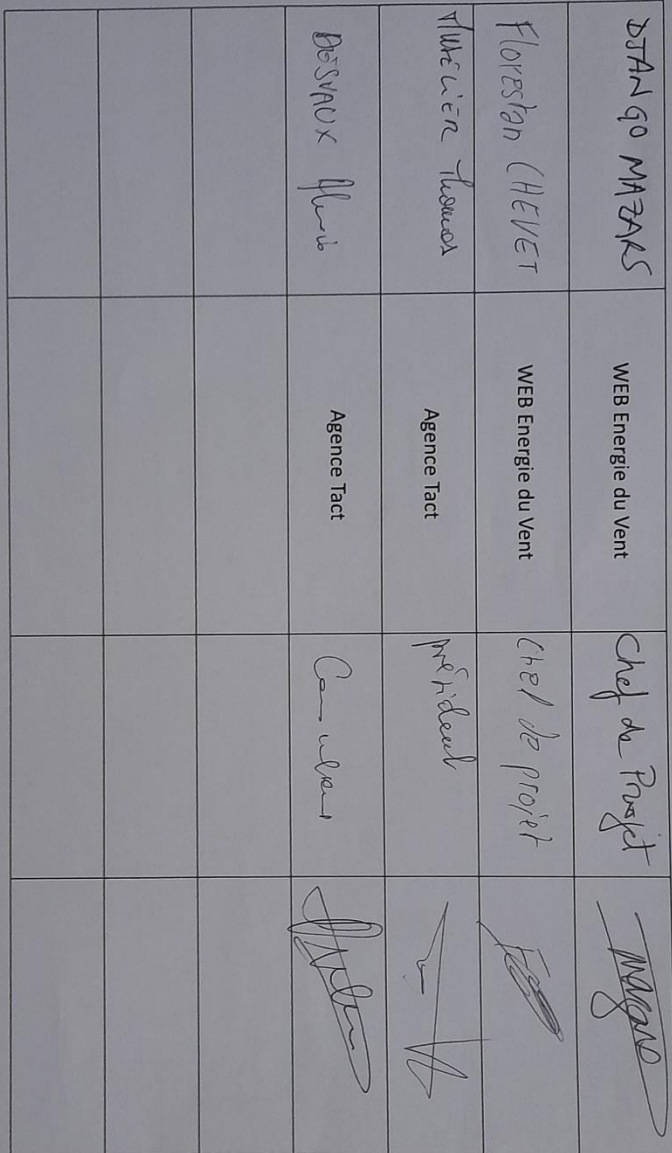 DJANGO MAZARS WEB Energie du Vent Chef de Projet
Florestan CHEVET WEB Energie du Vent Chef de projet
Thomas Agence Tact président
DESVAUX Agence Tact